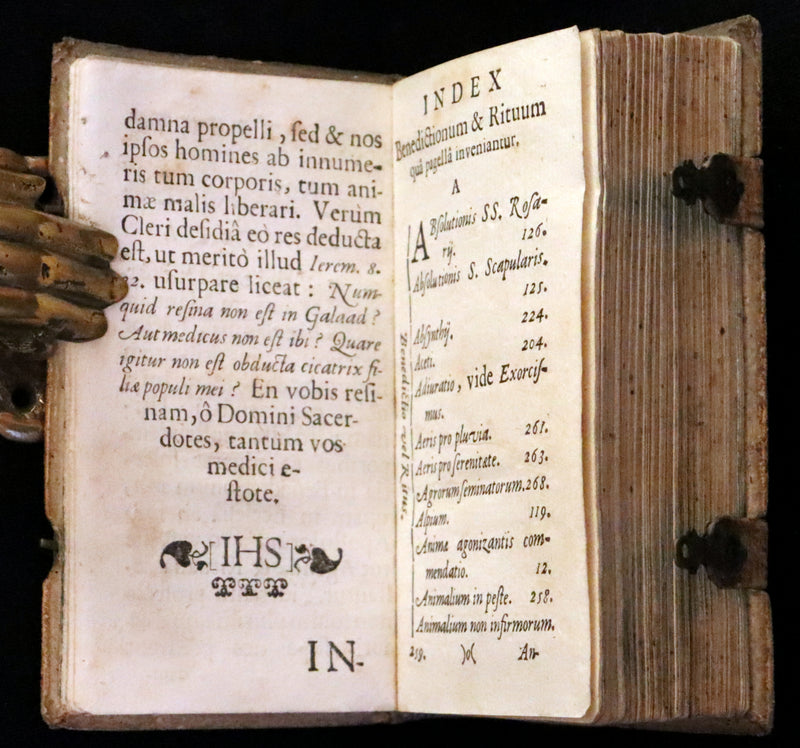 damna propelli, ſed & nos
ipſos homines ab innume-
ris tum corporis, tum ani-
mæ malis liberari. Verùm
Cleri deſidiâ eò res deducta
eſt, ut meritò illud Ierem. 8.
22. uſurpare liceat: Num-
quid reſina non eſt in Galaad?
Aut medicus non eſt ibi? Quare
igitur non eſt obducta cicatrix fi-
liæ populi mei? En vobis reſi-
nam, ô Domini Sacer-
dotes, tantum vos
medici e-
ſtote.
[IHS]
IN-
INDEX
Benedictionum & Rituum
quâ pagellâ inveniantur.
A
ABſolutionis SS. Roſa-
rij. 126.
Abſolutionis S. Scapularis.
125.
Abſynthij. 224.
Aceti. 204.
Adiuratio, vide Exorciſ-
mus.
Aeris pro pluvia. 261.
Aeris pro ſerenitate. 263.
Agrorum ſeminatorum. 268.
Alpium. 119.
Animæ agonizantis com-
mendatio. 12.
Animalium in peſte. 258.
Animalium non infirmorum.
259. )o( An-
Benedictio vel Ritus.